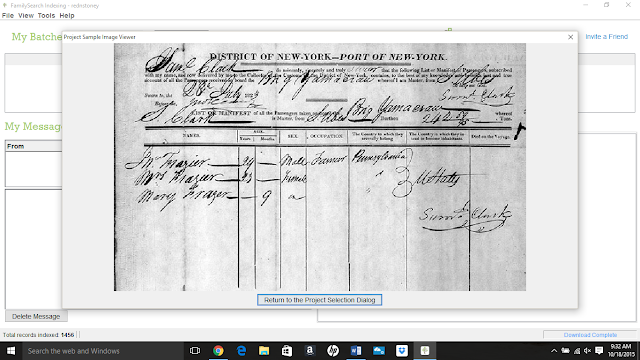 FamilySearch Indexing - rednstoney
File View Tools Help
My Batche
Invite a Friend
Project Sample Image Viewer
DISTRICT OF NEW-YORK—PORT OF NEW-YORK.
Clark do solemnly, sincerely and truly that the following List or Manifest of Passengers, subscribed
with my name, and now delivered by me to the Collector of the Customs of the District of New-York, contains, to the best of my knowledge and belief, a just and true
account of all the Passengers received on board the Brig whereof I am Master, from
Sworn to the
Before me,
LIST OR MANIFEST of all the Passengers taken on board the Brig whereof
is Master, from Burthen Tons.
NAMES. AGE. Years Months SEX. OCCUPATION. The Country to which they severally belong. The Country in which they intend to become inhabitants. Died on the Voyage.
Frazier 29 Male Farmer Pennsylvania
Mrs Frazier 23 Female "
Mary Frazer 9 U States
Clark
My Messag
From
Return to the Project Selection Dialog
Delete Message
Total records indexed: 1456
Download Complete
Search the web and Windows
9:32 AM
10/18/2015